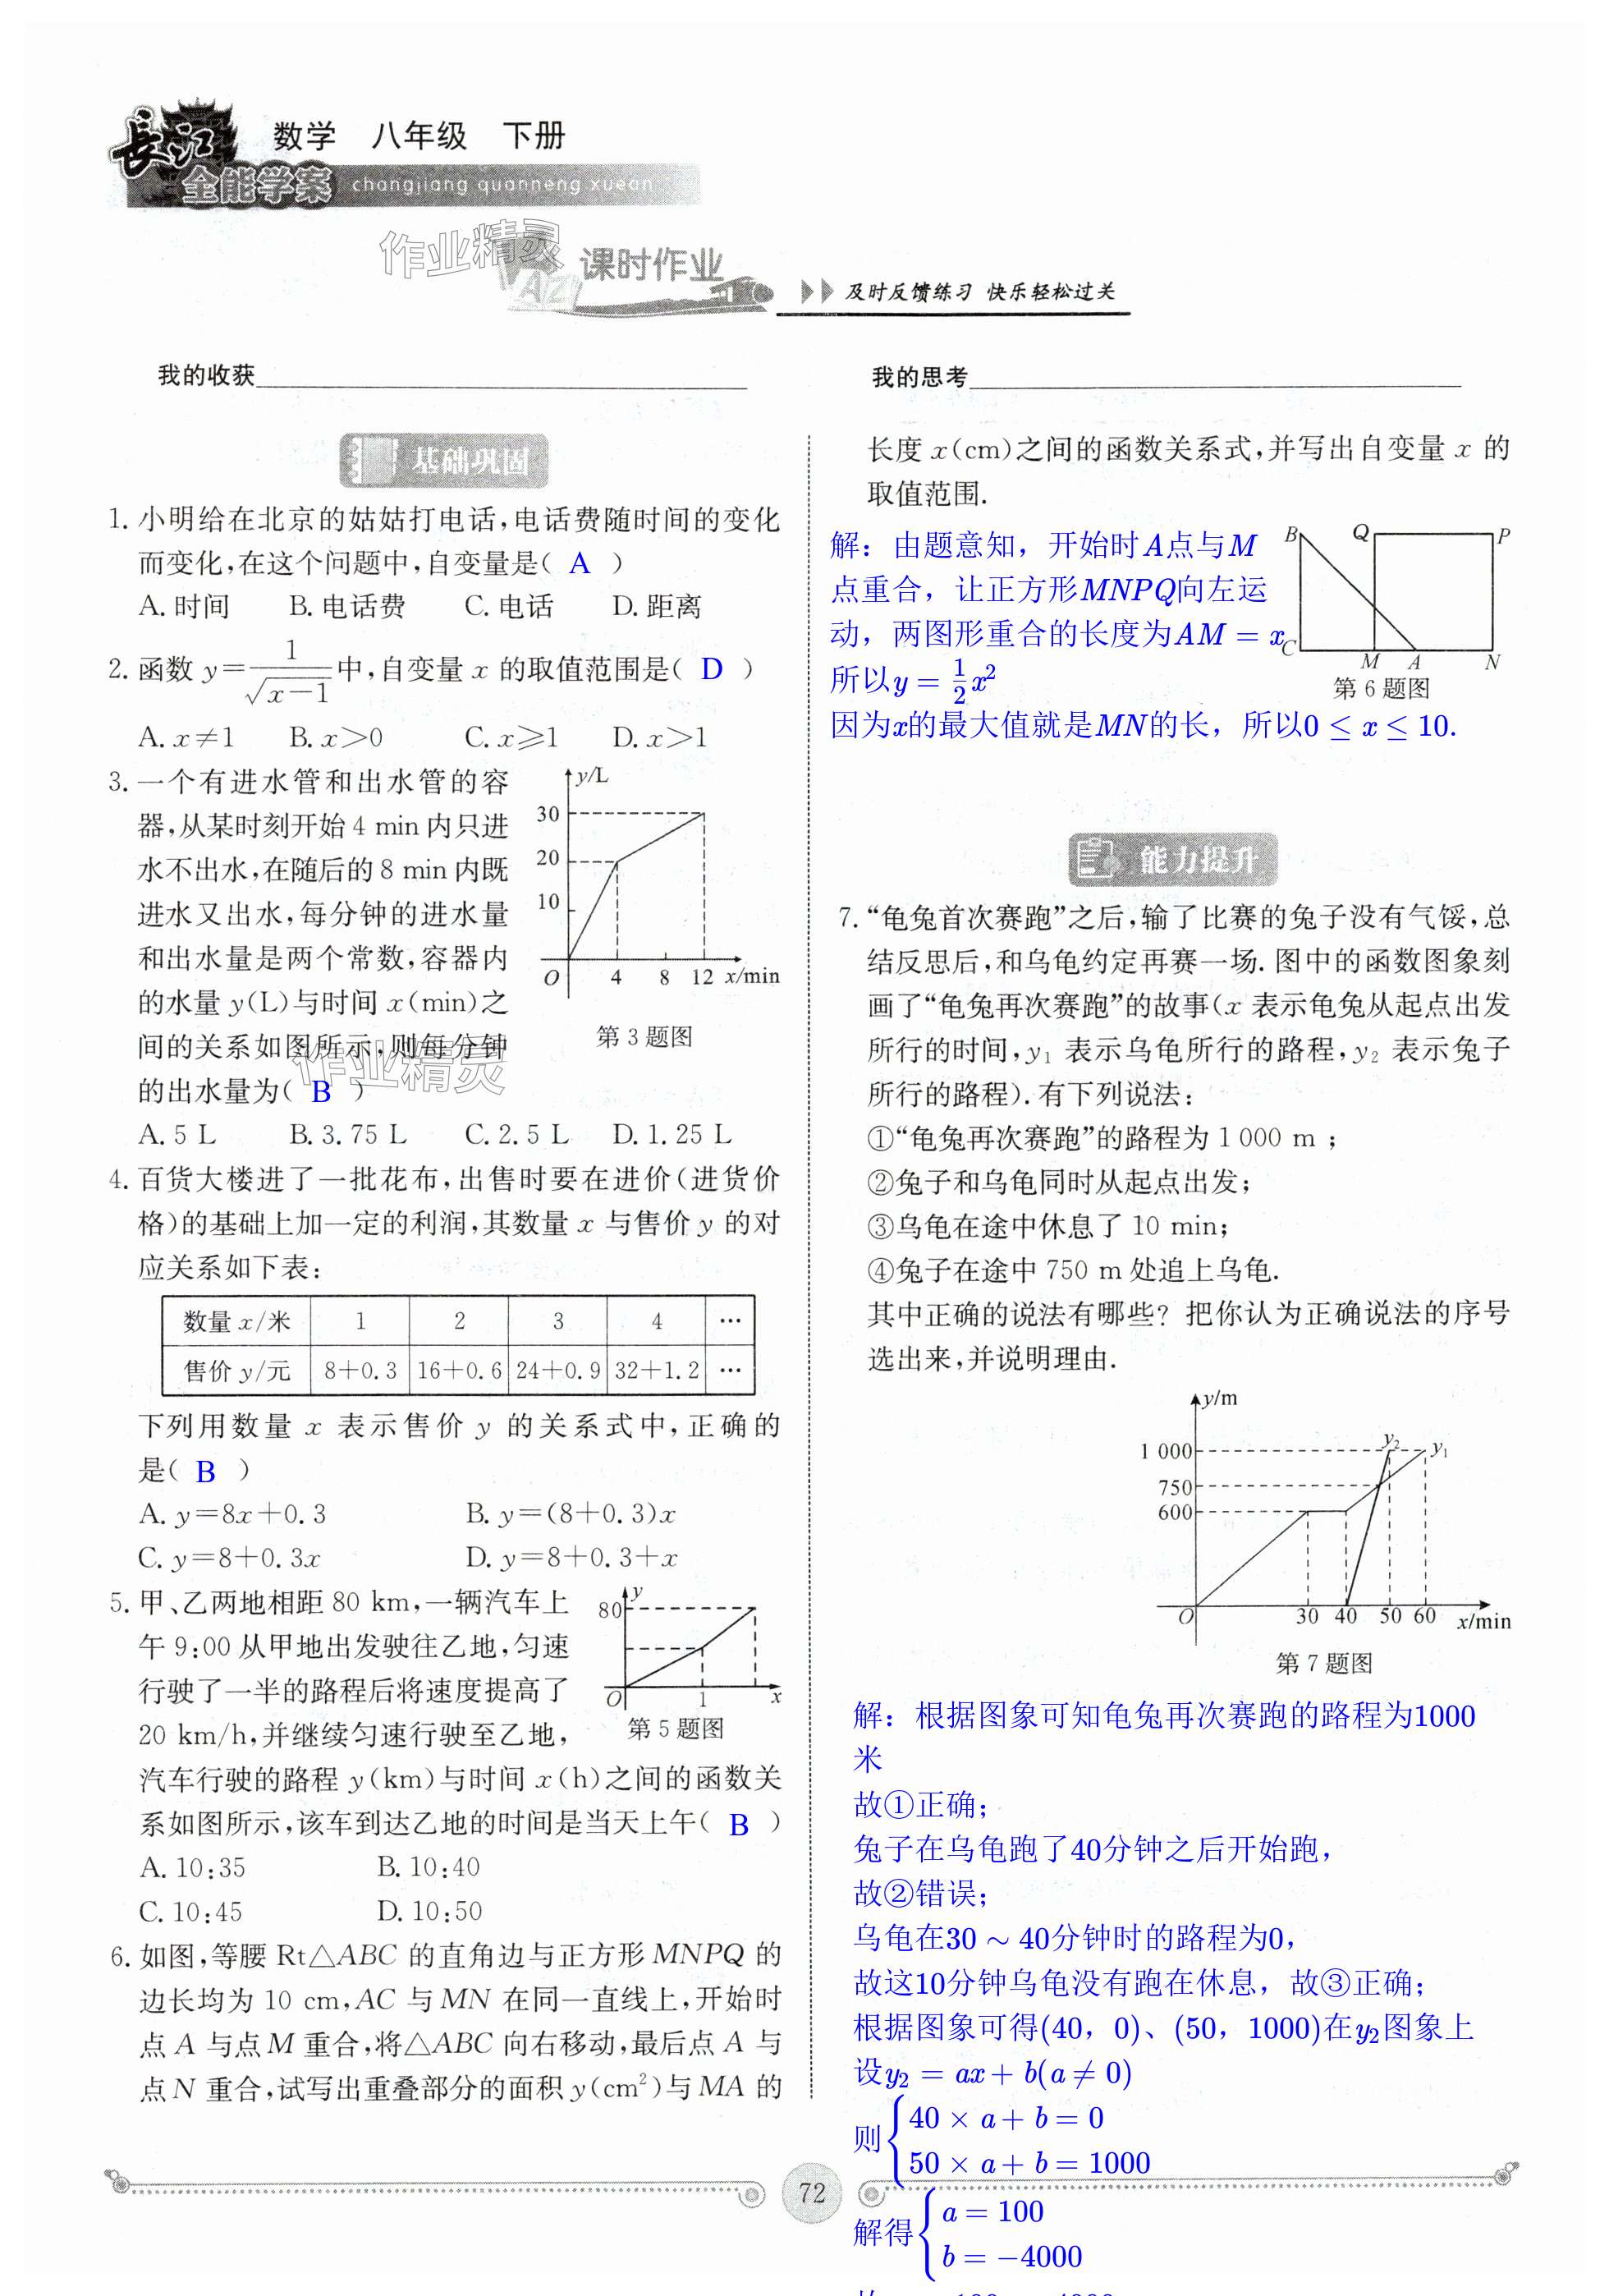 长江
数学 八年级 下册
全能学案 changjiang quanneng xuean
作业精灵
课时作业
及时反馈练习 快乐轻松过关
我的收获
基础巩固
1. 小明给在北京的姑姑打电话,电话费随时间的变化
而变化,在这个问题中,自变量是( A )
A. 时间 B. 电话费 C. 电话 D. 距离
2. 函数 y=1/√(x-1) 中,自变量 x 的取值范围是( D )
A. x≠1 B. x>0 C. x≥1 D. x>1
3. 一个有进水管和出水管的容
器,从某时刻开始 4 min 内只进
水不出水,在随后的 8 min 内既
进水又出水,每分钟的进水量
和出水量是两个常数,容器内
的水量 y(L)与时间 x(min)之
间的关系如图所示,则每分钟
的出水量为( B )
作业精灵
y/L
30
20
10
O 4 8 12 x/min
第 3 题图
A. 5 L B. 3.75 L C. 2.5 L D. 1.25 L
4. 百货大楼进了一批花布,出售时要在进价(进货价
格)的基础上加一定的利润,其数量 x 与售价 y 的对
应关系如下表:
数量 x/米 1 2 3 4 …
售价 y/元 8+0.3 16+0.6 24+0.9 32+1.2 …
下列用数量 x 表示售价 y 的关系式中,正确的
是( B )
A. y=8x+0.3 B. y=(8+0.3)x
C. y=8+0.3x D. y=8+0.3+x
5. 甲、乙两地相距 80 km,一辆汽车上
午 9:00 从甲地出发驶往乙地,匀速
行驶了一半的路程后将速度提高了
20 km/h,并继续匀速行驶至乙地,
汽车行驶的路程 y(km)与时间 x(h)之间的函数关
系如图所示,该车到达乙地的时间是当天上午( B )
y
80
O 1 x
第 5 题图
A. 10:35 B. 10:40
C. 10:45 D. 10:50
6. 如图,等腰 Rt△ABC 的直角边与正方形 MNPQ 的
边长均为 10 cm,AC 与 MN 在同一直线上,开始时
点 A 与点 M 重合,将△ABC 向右移动,最后点 A 与
点 N 重合,试写出重叠部分的面积 y(cm²)与 MA 的
我的思考
长度 x(cm)之间的函数关系式,并写出自变量 x 的
取值范围.
解：由题意知，开始时A点与M
点重合，让正方形MNPQ向左运
动，两图形重合的长度为AM = x
所以y = 1/2 x²
因为x的最大值就是MN的长，所以0 ≤ x ≤ 10.
B Q P
C M A N
第 6 题图
能力提升
7. “龟兔首次赛跑”之后,输了比赛的兔子没有气馁,总
结反思后,和乌龟约定再赛一场. 图中的函数图象刻
画了“龟兔再次赛跑”的故事(x 表示龟兔从起点出发
所行的时间,y₁ 表示乌龟所行的路程,y₂ 表示兔子
所行的路程). 有下列说法:
①“龟兔再次赛跑”的路程为 1 000 m ;
②兔子和乌龟同时从起点出发;
③乌龟在途中休息了 10 min;
④兔子在途中 750 m 处追上乌龟.
其中正确的说法有哪些? 把你认为正确说法的序号
选出来,并说明理由.
y/m
1 000 y₂ y₁
750
600
O 30 40 50 60 x/min
第 7 题图
解：根据图象可知龟兔再次赛跑的路程为1000
米
故①正确；
兔子在乌龟跑了40分钟之后开始跑，
故②错误；
乌龟在30 ~ 40分钟时的路程为0，
故这10分钟乌龟没有跑在休息，故③正确；
根据图象可得(40，0)、(50，1000)在y₂图象上
设y₂ = ax + b(a ≠ 0)
则{40 × a + b = 0
50 × a + b = 1000
解得{a = 100
b = −4000
72